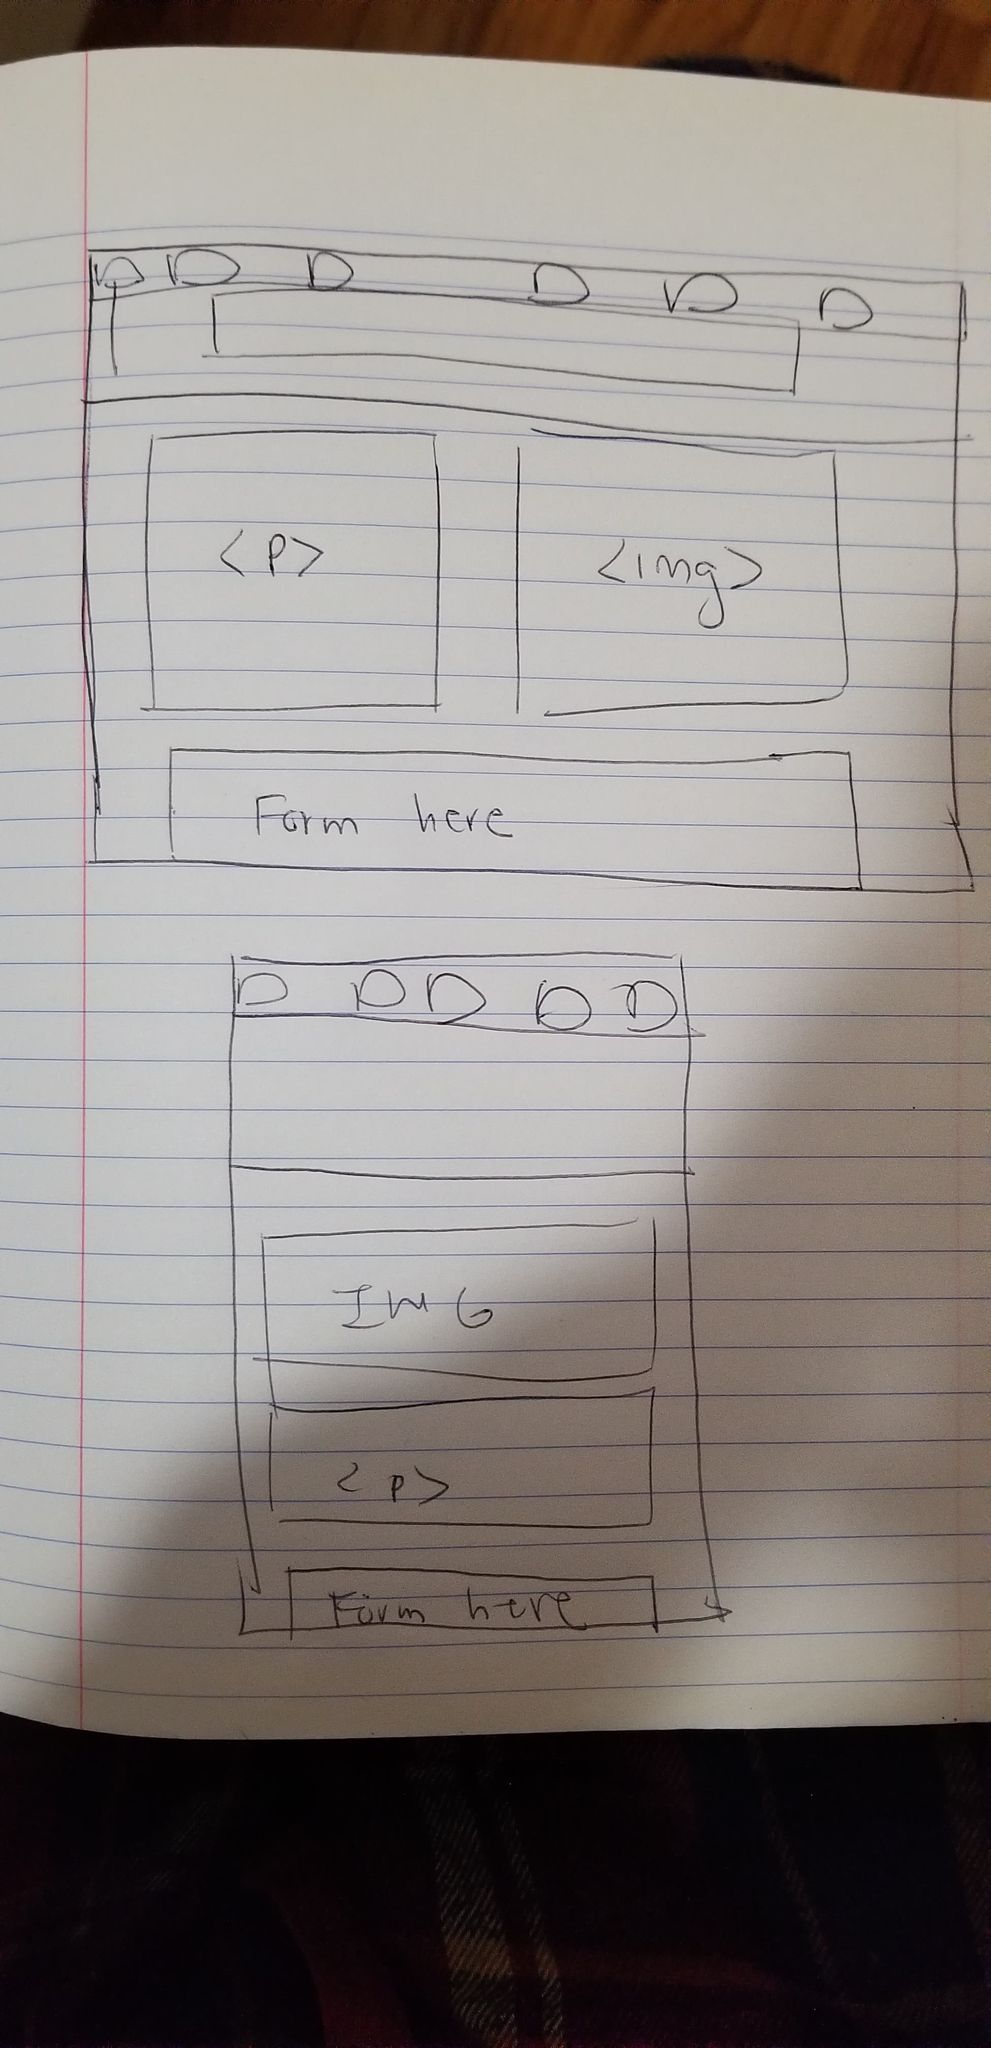 <p>
<img>
Form here
IMG
<p>
Form here